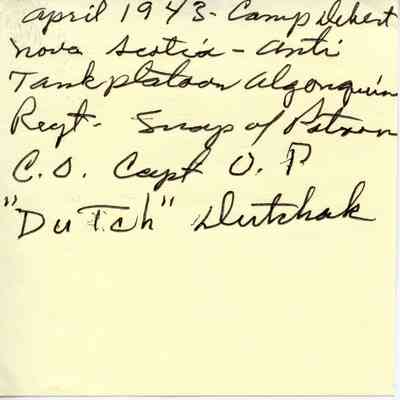 April 1943 - Camp Debert
Nova Scotia - Anti
Tank platoon Algonquin
Regt - Snap of Platoon
C.O. Capt O. P
"DuTch" Dutchak